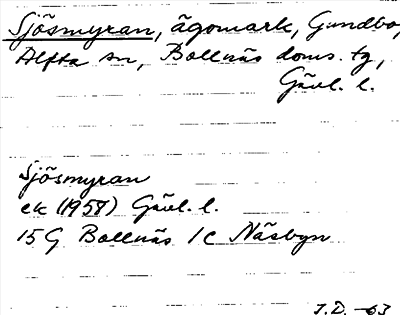 Sjösmyran, ägomark, Gundbo,
Alfta sn, Bollnäs doms. tg,
Gävl. l.
Sjösmyran
ek (1958) Gävl. l.
15G Bollnäs 1c Näsbyn
J.D. -63